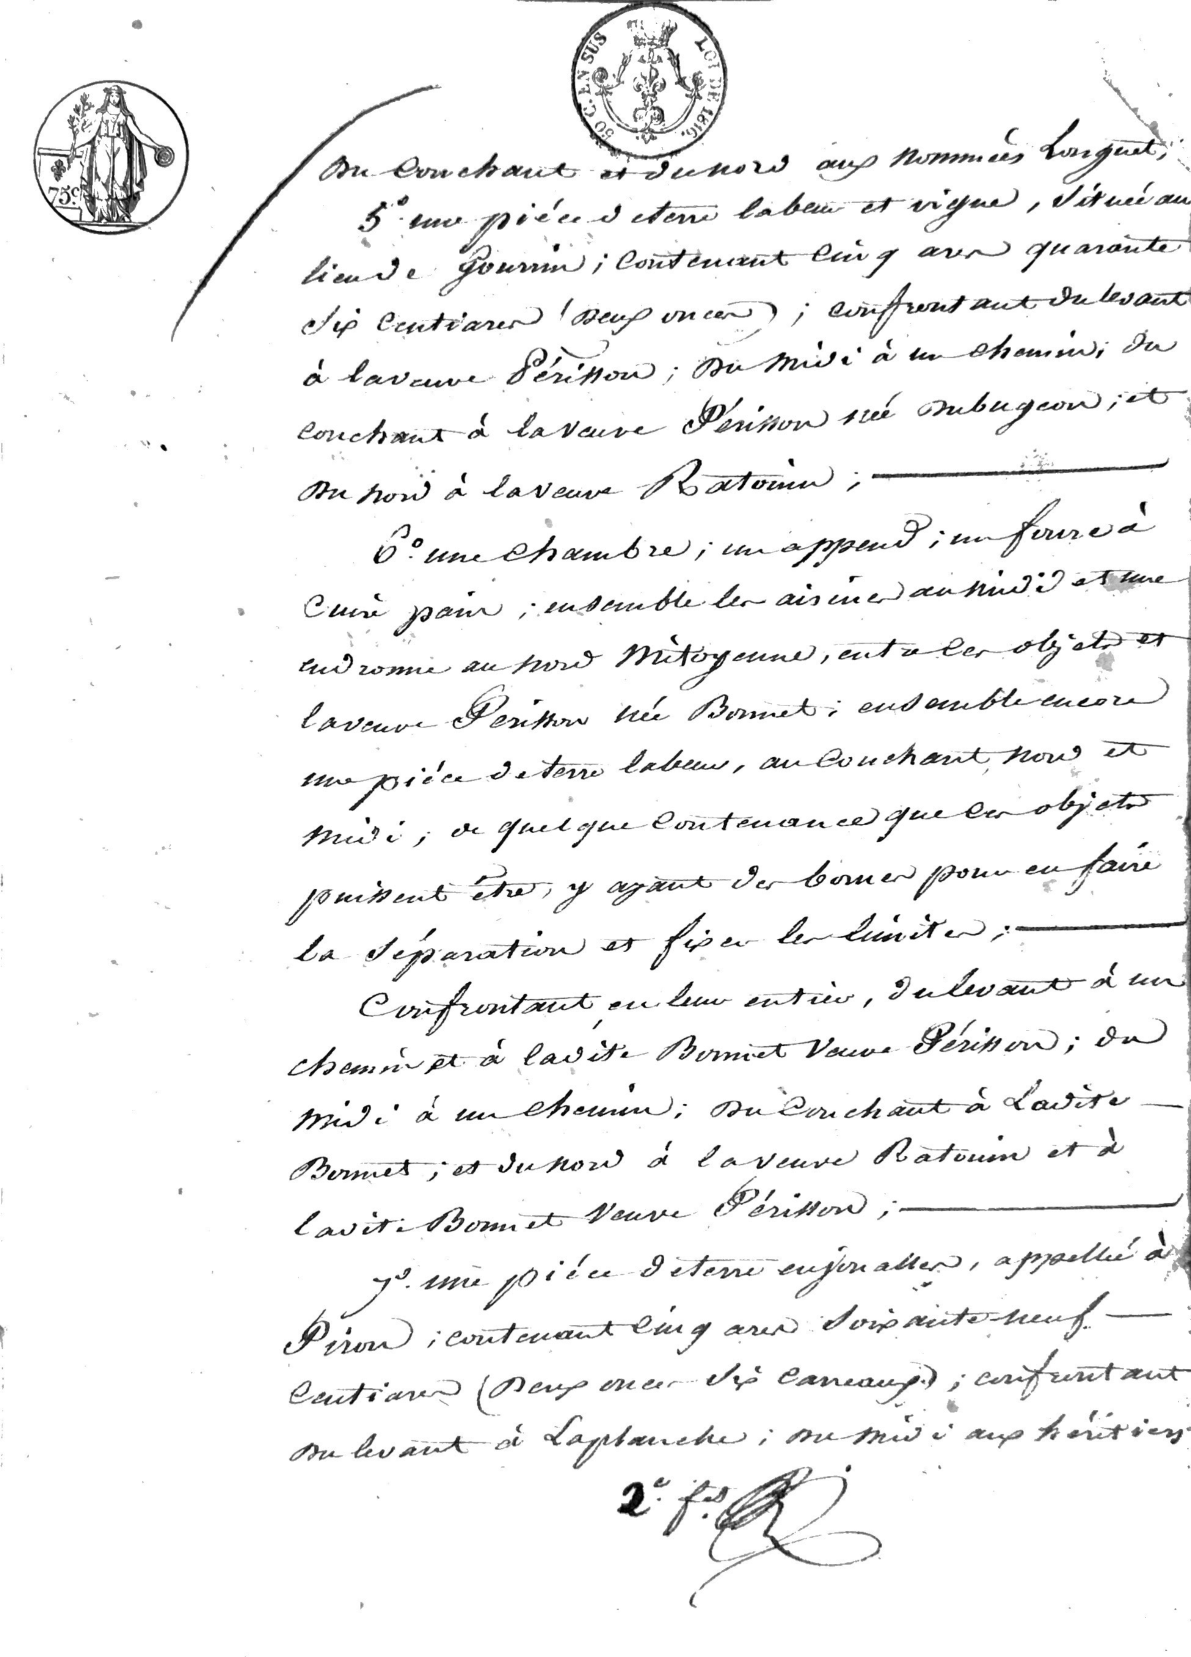 75 c.
50 C. EN SUS LOI DE 1816.
Du Couchant et du nord aux nommées Longuet;
5° une piéce de terre labeur et vigne, située au
lieu de Gourrin; Contenant Cinq ares quarante
six Centiares (Deux onces); confrontant du levant
à la veuve Périsson; Du midi à un Chemin; du
Couchant à la Veuve Périsson née Dubugeon; et
Du nord à la veuve Ratouin;
6° une Chambre; un append; un fourd à
Cuire pain; ensemble les aisines au midi et une
endronne au nord mitoyenne, entre ces objets et
la veuve Périsson née Bonnet; ensemble encore
une piéce de terre labeur, au Couchant, nord et
midi; de quelque Contenance que ces objets
puissent être, y ayant des bornes pour en faire
la Séparation et fixer les limites;
Confrontant en leur entier, du levant à un
chemin et à ladite Bonnet Veuve Périsson; du
midi à un Chemin; Du Couchant à Ladite
Bonnet; et du nord à la veuve Ratouin et à
ladite Bonnet Veuve Périsson;
7°. une piéce de terre en jonalles, appellée à
Piron; contenant Cinq ares Soixante neuf
Centiares (Deux onces Six Carreaux); confrontant
Du levant à Laplanche; Du midi aux héritiers
2e. f.et